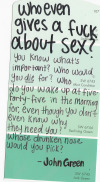 who even
gives a fuck
about sex?
You know what's
important? Who would
you die for? Who
do you wake up at five
forty-five in the morning
for, even though you don't
even know why
they need you?
whose drunken nose
would you pick?
- John Green